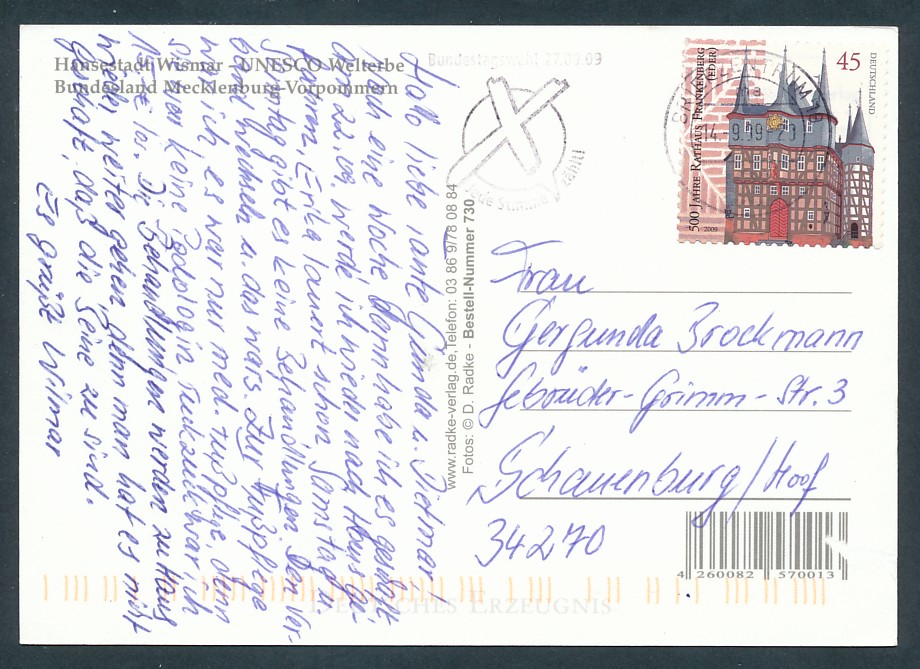 Hansestadt Wismar - UNESCO Welterbe
Bundesland Mecklenburg-Vorpommern
Hallo liebe Tante Gunda u. Dietmar!
Noch eine Woche, dann habe ich es geschafft
werde ich wieder nach Hause
fahren. Erika lauert schon. Samstag u.
Sonntag gibt es keine Behandlungen. Der Ver-
band wechseln u. das wars. Zur Fußpflege
war ich, es war nur med. Fußpflege, denn
keine Podologin
los. Die Behandlungen werden zu Haus
weiter gehen denn man hat es nicht
geschafft, daß die Beine zu sind.
Es grüßt Wilmar
www.radke-verlag.de, Telefon: 03 86 9/78 08 84
Fotos: © D. Radke - Bestell-Nummer 730
Bundestagswahl 27.09.09
Jede Stimme zählt!
500 JAHRE RATHAUS FRANKENBERG
(EDER)
45
DEUTSCHLAND
2009
Frau
Gergunda Brockmann
Gebrüder-Grimm-Str. 3
Schauenburg/Hoof
34270
4 260082 570013
DEUTSCHES ERZEUGNIS